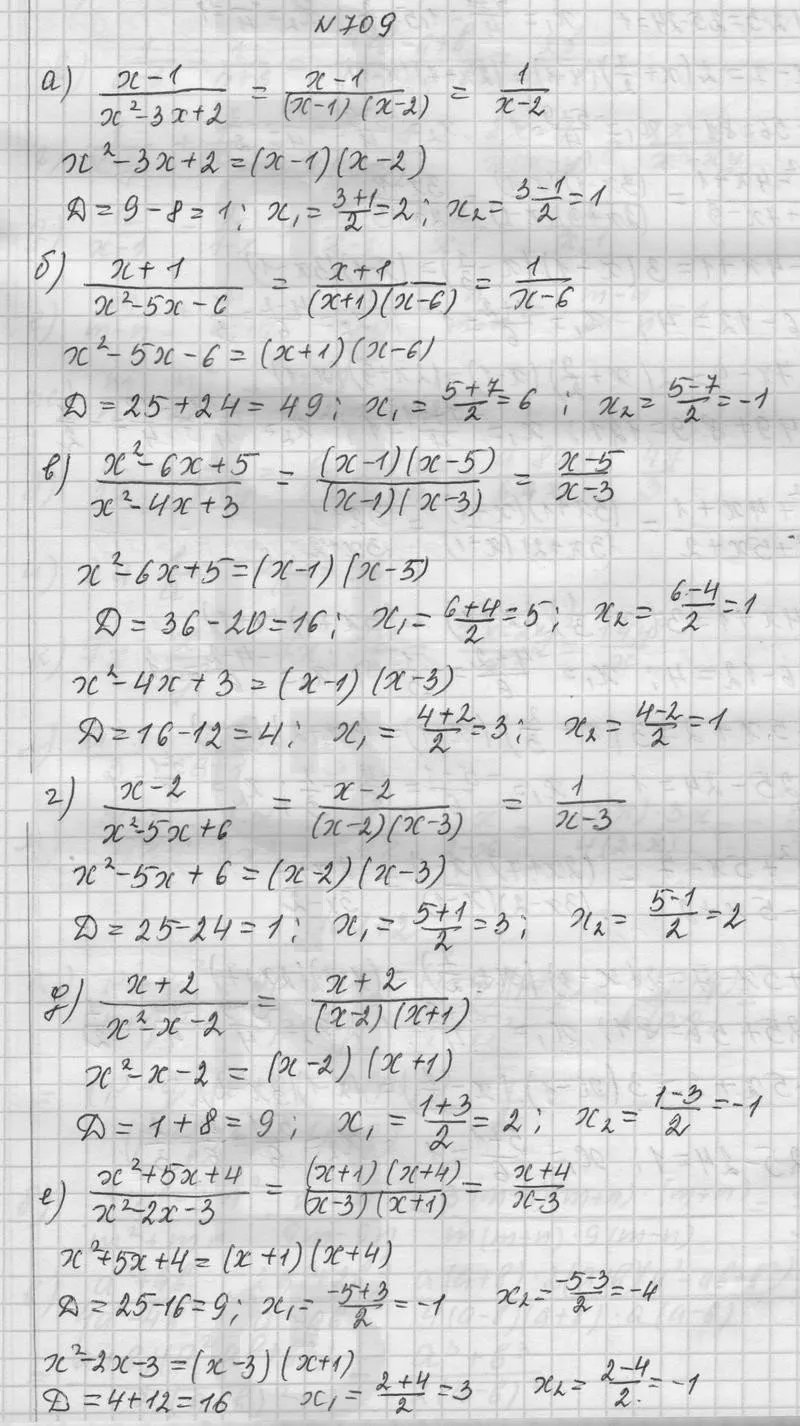 №709
а) (x-1)/(x²-3x+2) = (x-1)/((x-1)(x-2)) = 1/(x-2)
x²-3x+2=(x-1)(x-2)
Д=9-8=1; x₁=(3+1)/2=2; x₂=(3-1)/2=1
б) (x+1)/(x²-5x-6) = (x+1)/((x+1)(x-6)) = 1/(x-6)
x²-5x-6=(x+1)(x-6)
Д=25+24=49; x₁=(5+7)/2=6; x₂=(5-7)/2=-1
в) (x²-6x+5)/(x²-4x+3) = ((x-1)(x-5))/((x-1)(x-3)) = (x-5)/(x-3)
x²-6x+5=(x-1)(x-5)
Д=36-20=16; x₁=(6+4)/2=5; x₂=(6-4)/2=1
x²-4x+3=(x-1)(x-3)
Д=16-12=4; x₁=(4+2)/2=3; x₂=(4-2)/2=1
г) (x-2)/(x²-5x+6) = (x-2)/((x-2)(x-3)) = 1/(x-3)
x²-5x+6=(x-2)(x-3)
Д=25-24=1; x₁=(5+1)/2=3; x₂=(5-1)/2=2
д) (x+2)/(x²-x-2) = (x+2)/((x-2)(x+1))
x²-x-2=(x-2)(x+1)
Д=1+8=9; x₁=(1+3)/2=2; x₂=(1-3)/2=-1
е) (x²+5x+4)/(x²-2x-3) = ((x+1)(x+4))/((x-3)(x+1)) = (x+4)/(x-3)
x²+5x+4=(x+1)(x+4)
Д=25-16=9; x₁=(-5+3)/2=-1 x₂=(-5-3)/2=-4
x²-2x-3=(x-3)(x+1)
Д=4+12=16 x₁=(2+4)/2=3 x₂=(2-4)/2=-1